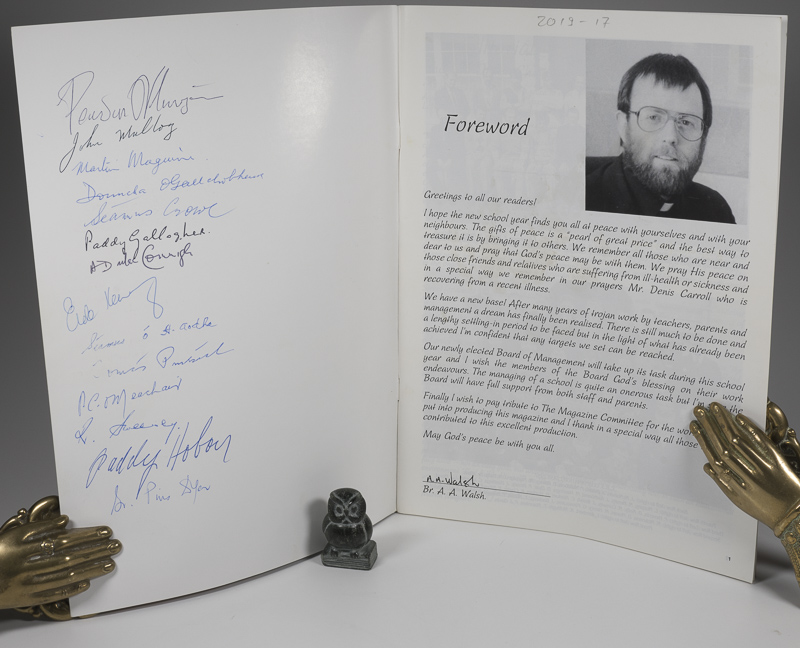 John Mulloy
Martin Maguire
Seamus Crowe
Paddy Gallagher.
Paddy Hoban
Br. Pius
2019-17
Foreword
Greetings to all our readers!
I hope the new school year finds you all at peace with yourselves and with your
neighbours. The gifts of peace is a "pearl of great price" and the best way to
treasure it is by bringing it to others. We remember all those who are near and
dear to us and pray that God's peace may be with them. We pray His peace on
those close friends and relatives who are suffering from ill-health or sickness and
in a special way we remember in our prayers Mr. Denis Carroll who is
recovering from a recent illness.
We have a new base! After many years of trojan work by teachers, parents and
management a dream has finally been realised. There is still much to be done and
a lengthy settling-in period to be faced but in the light of what has already been
achieved I'm confident that any targets we set can be reached.
Our newly elected Board of Management will take up its task during this school
year and I wish the members of the Board God's blessing on their work
endeavours. The managing of a school is quite an onerous task but I'm
Board will have full support from both staff and parents.
Finally I wish to pay tribute to The Magazine Committee for the
put into producing this magazine and I thank in a special way all those
contributed to this excellent production.
May God's peace be with you all.
A.A. Walsh
Br. A. A. Walsh.